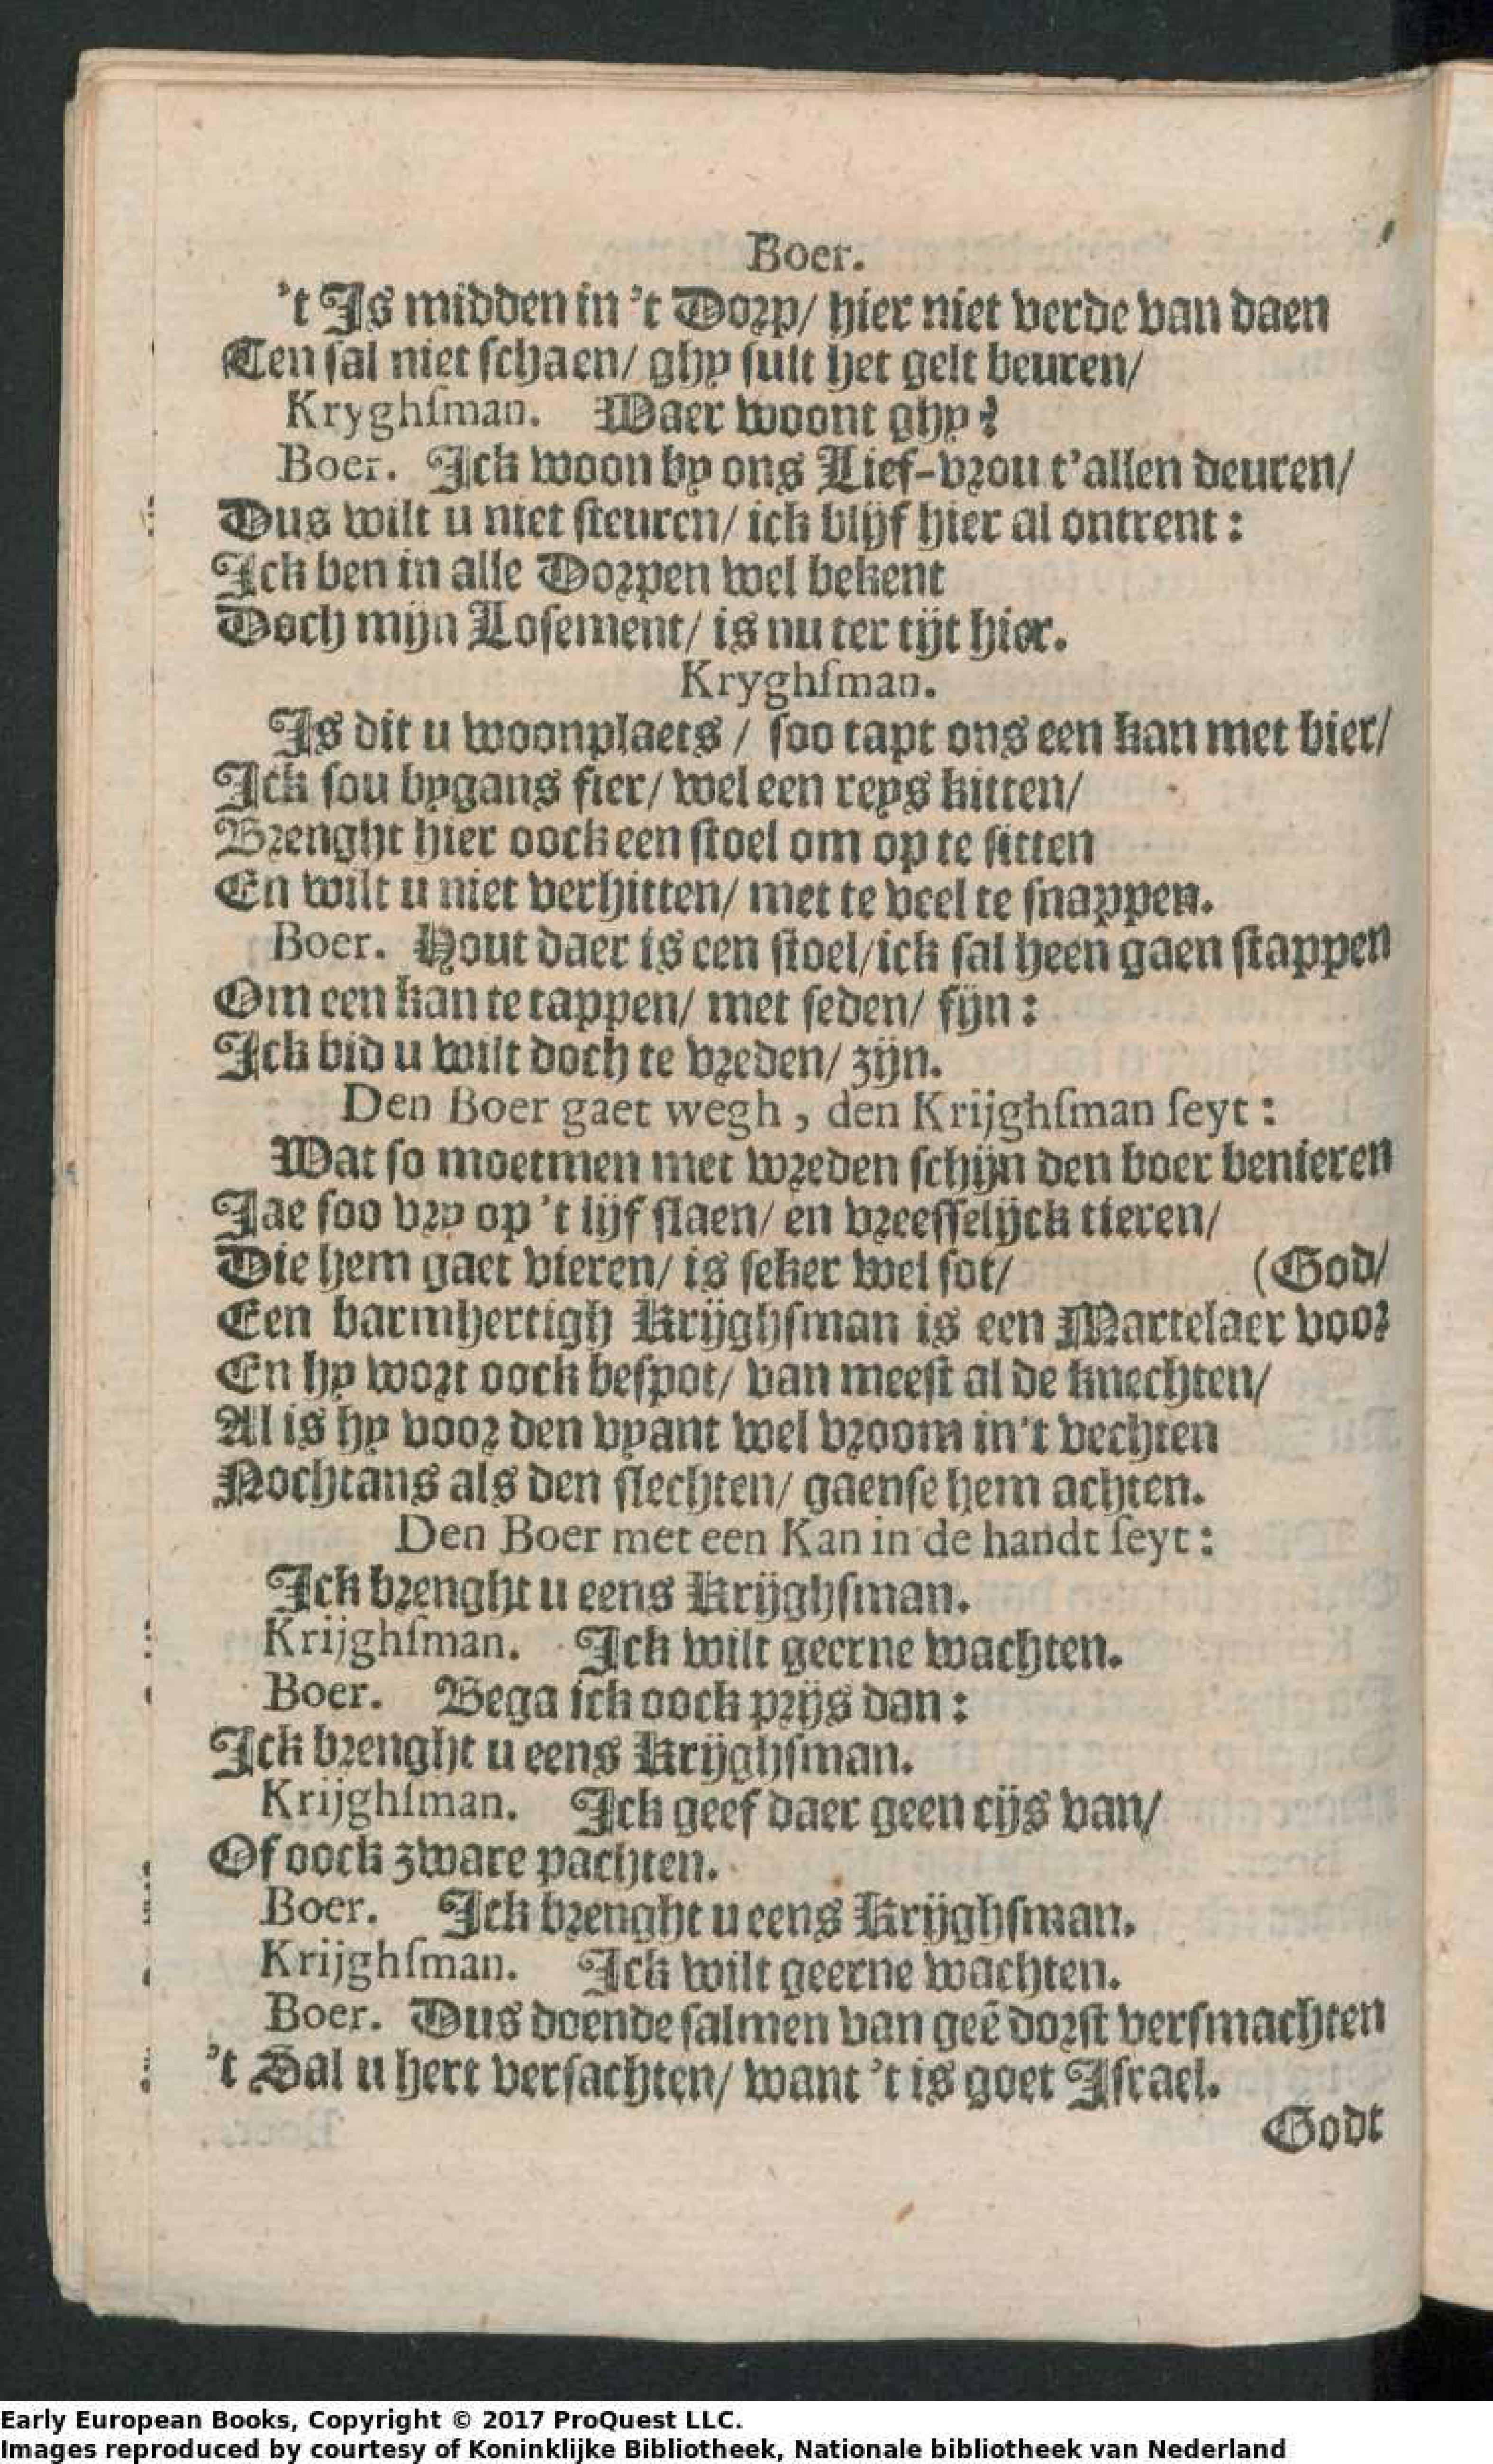 Boer.
't Is midden in 't Dorp/ hier niet verde van daen
Ten sal niet schaen/ ghy sult het gelt beuren/
Kryghsman. Waer woont ghy?
Boer. Ick woon by ons Lief-vrou t'allen deuren/
Dus wilt u niet steuren/ ick blijf hier al ontrent:
Ick ben in alle Dorpen wel bekent
Doch mijn Losement/ is nu ter tijt hier.
Kryghsman.
Is dit u woonplaets / soo tapt ons een kan met bier/
Ick sou bygans fier/ wel een reys kitten/
Brenght hier oock een stoel om op te sitten
En wilt u niet verhitten/ met te veel te snappen.
Boer. Hout daer is een stoel/ick sal heen gaen stappen
Om een kan te tappen/ met seden/ fijn:
Ick bid u wilt doch te vreden/ zijn.
Den Boer gaet wegh, den Krijghsman seyt:
Wat so moetmen met wreden schijn den boer benieren
Jae soo vry op 't lijf slaen/ en vreesselijck tieren/
Die hem gaet vieren/ is seker wel sot/ (God/
Een barmhertigh Krijghsman is een Martelaer voor
En hy wort oock bespot/ van meest al de knechten/
Al is hy voor den vyant wel vroom in't vechten
Nochtans als den slechten/ gaense hem achten.
Den Boer met een Kan in de handt seyt:
Ick brenght u eens Krijghsman.
Krijghsman. Ick wilt geerne wachten.
Boer. Bega ick oock prijs dan:
Ick brenght u eens Krijghsman.
Krijghsman. Ick geef daer geen cijs van/
Of oock zware pachten.
Boer. Ick brenght u eens Krijghsman.
Krijghsman. Ick wilt geerne wachten.
Boer. Dus doende salmen van geē dorst versmachten
't Sal u hert versachten/ want 't is goet Israel.
Godt
Early European Books, Copyright © 2017 ProQuest LLC.
Images reproduced by courtesy of Koninklijke Bibliotheek, Nationale bibliotheek van Nederland